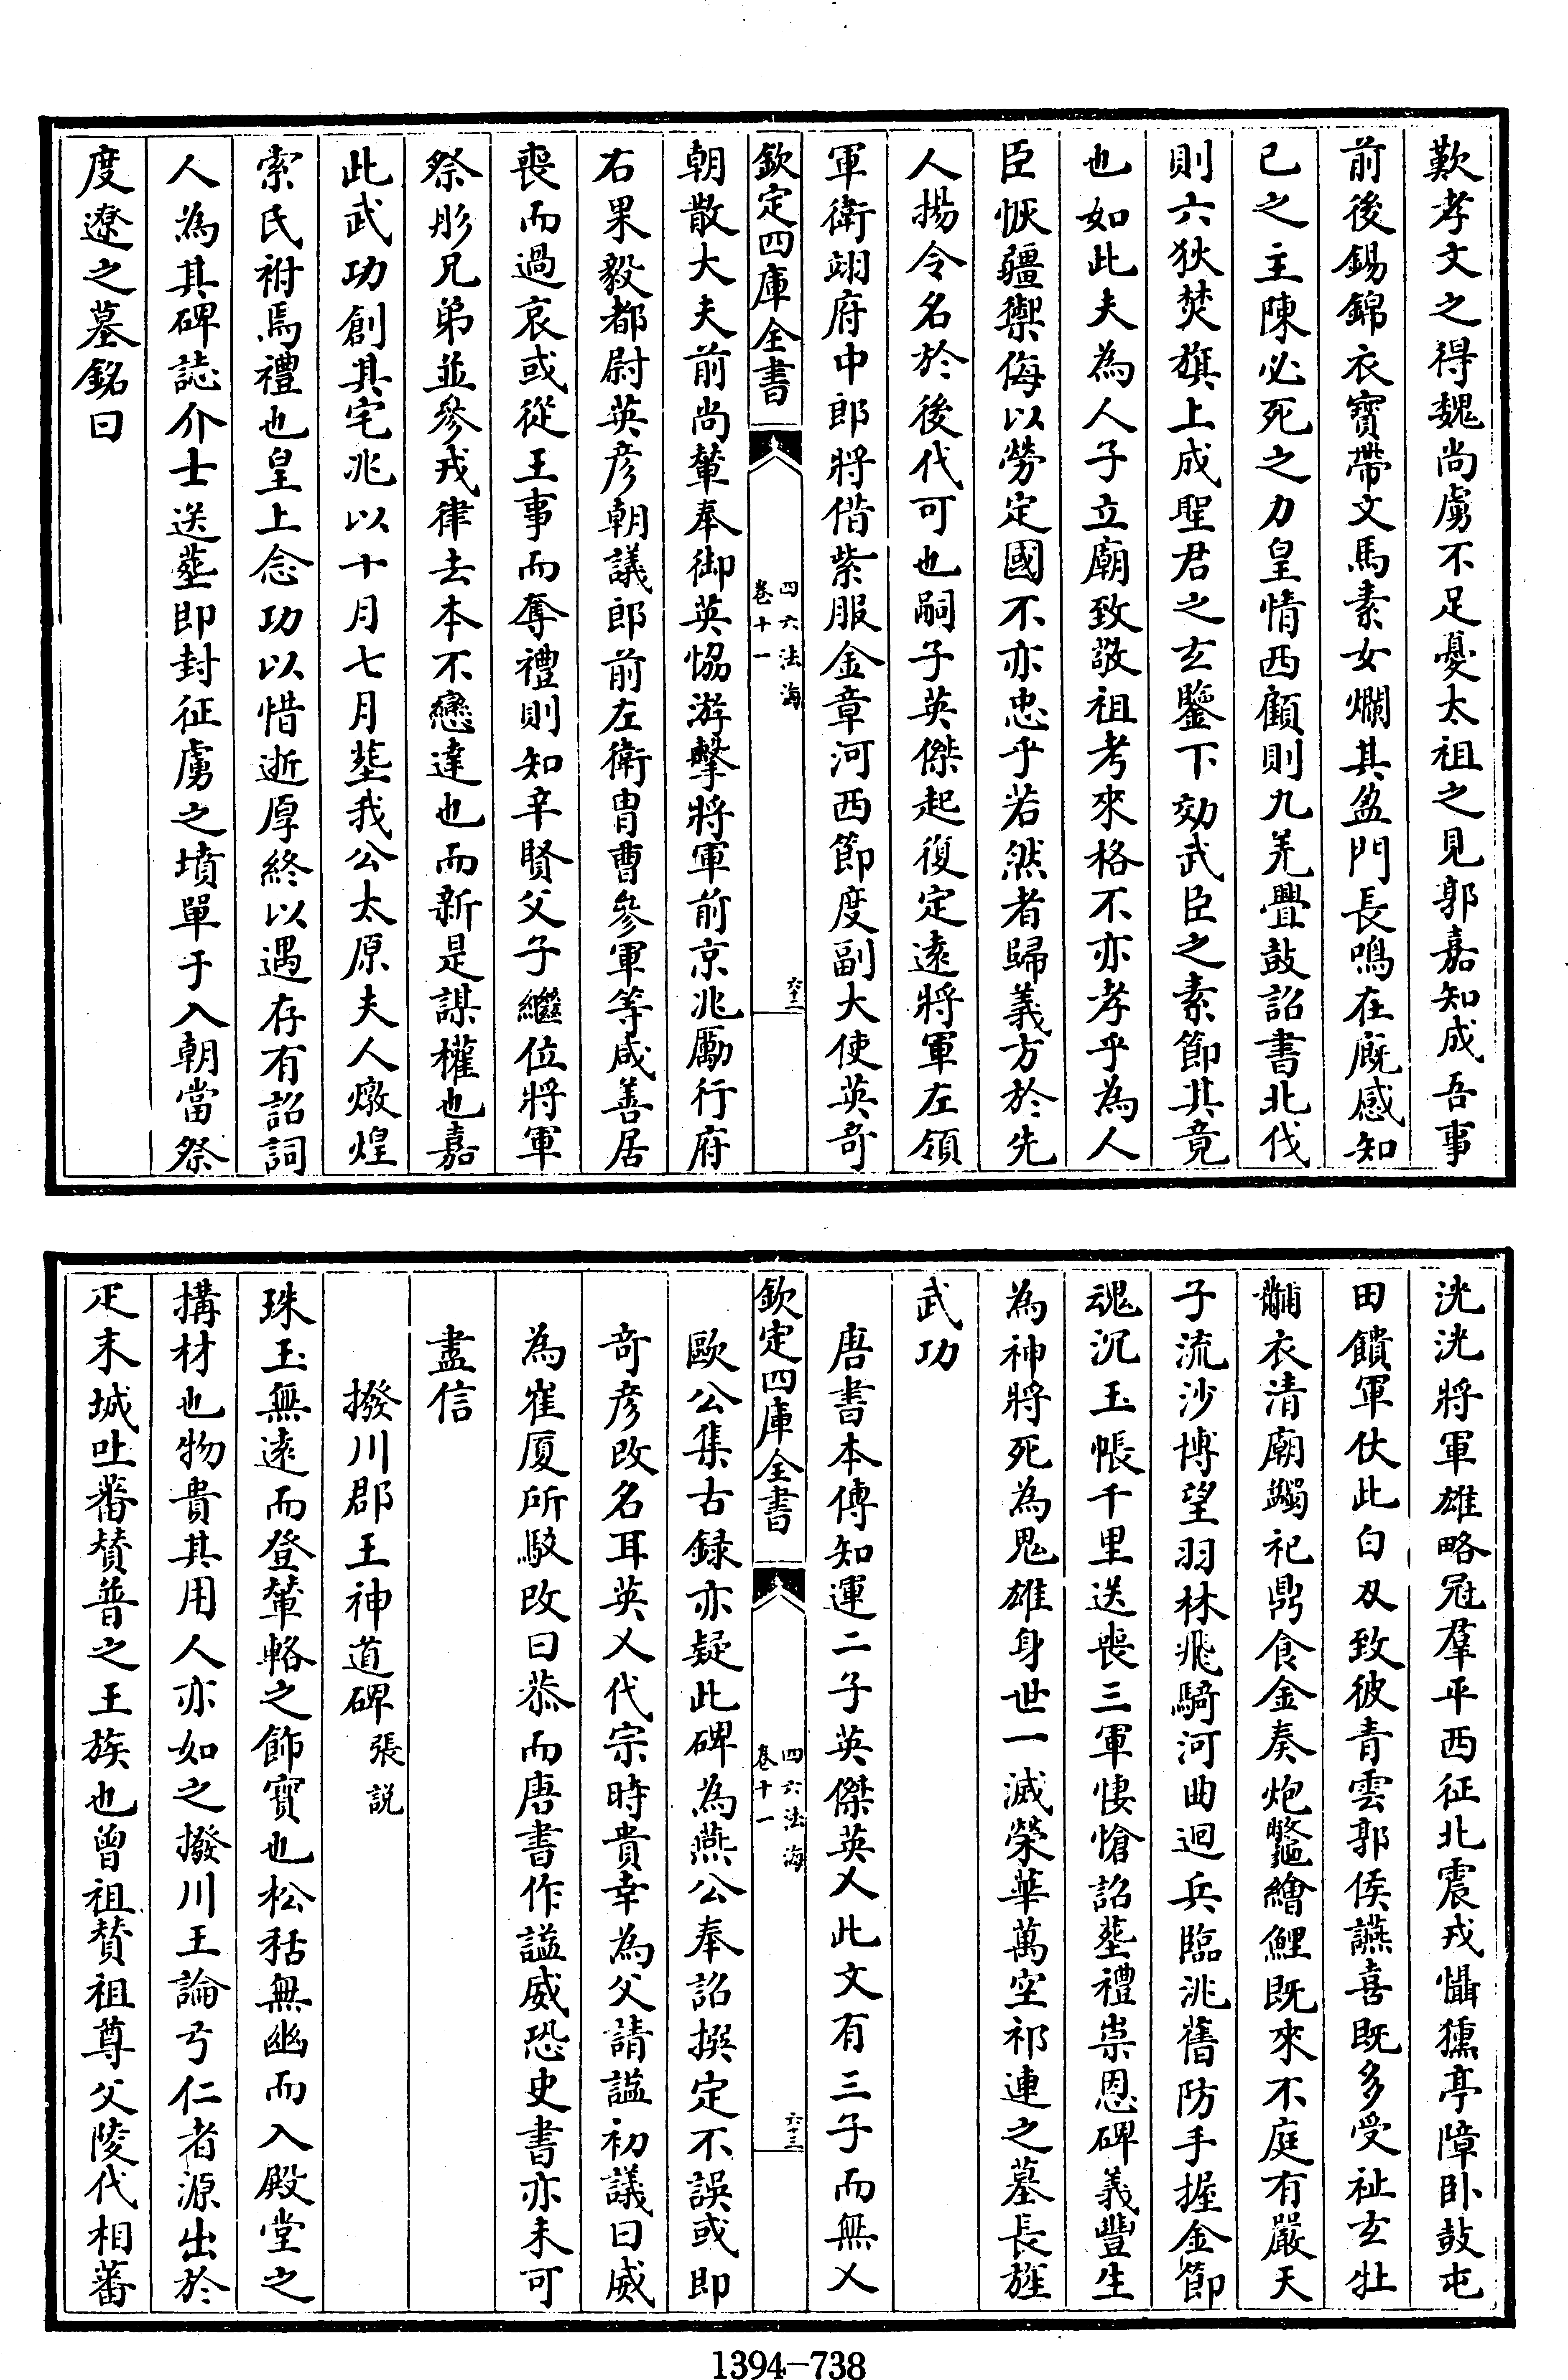 歎孝文之得魏尚虜不足憂太祖之見郭嘉知成吾事
前後錫錦衣寶帶文馬素女爛其盈門長鳴在廐感知
已之主陳必死之力皇情西顧則九羌疊鼓詔書北伐
則六狄焚旗上成聖君之玄鑒下効武臣之素節其竟
也如此夫為人子立廟致敬祖考來格不亦孝乎為人
臣恢疆禦侮以勞定國不亦忠乎若然者歸義方於先
人揚令名於後代可也嗣子英傑起復定遠將軍左領
軍衛翊府中郎將借紫服金章河西節度副大使英奇
欽定四庫全書
四六法海
卷十一
六十二
朝散大夫前尚輦奉御英恊游擊將軍前京兆勵行府
右果毅都尉英彦朝議郎前左衛胄曹參軍等咸善居
喪而過哀或從王事而奪禮則知辛賢父子繼位將軍
祭彤兄弟並參戎律去本不戀達也而新是謀權也嘉
此武功創其宅兆以十月七月塟我公太原夫人燉煌
索氏祔焉禮也皇上念功以惜逝厚終以遇存有詔詞
人為其碑誌介士送塟即封征虜之墳單于入朝當祭
度遼之墓銘曰
洸洸將軍雄略冠羣平西征北震戎懾獯亭障卧鼓屯
田饋軍仗此白刄致彼青雲郭侯讌喜既多受祉玄牡
黼衣清廟蠲祀鼎食金奏炮鼈繪鯉既來不庭有嚴天
子流沙博望羽林飛騎河曲迴兵臨洮舊防手握金節
魂沉玉帳千里送喪三軍悽愴詔塟禮崇恩碑義豐生
為神將死為鬼雄身世一滅榮華萬空祁連之墓長旌
武功
唐書本傳知運二子英傑英乂此文有三子而無乂
欽定四庫全書
四六法海
卷十一
六十三
歐公集古録亦疑此碑為燕公奉詔撰定不誤或即
奇彦改名耳英乂代宗時貴幸為父請諡初議曰威
為崔厦所駮改曰恭而唐書作諡威恐史書亦未可
盡信
撥川郡王神道碑 張説
珠玉無遠而登輦輅之飾寶也松栝無幽而入殿堂之
搆材也物貴其用人亦如之撥川王論弓仁者源出於
疋末城吐蕃賛普之王族也曾祖賛祖尊父陵代相蕃
1394-738